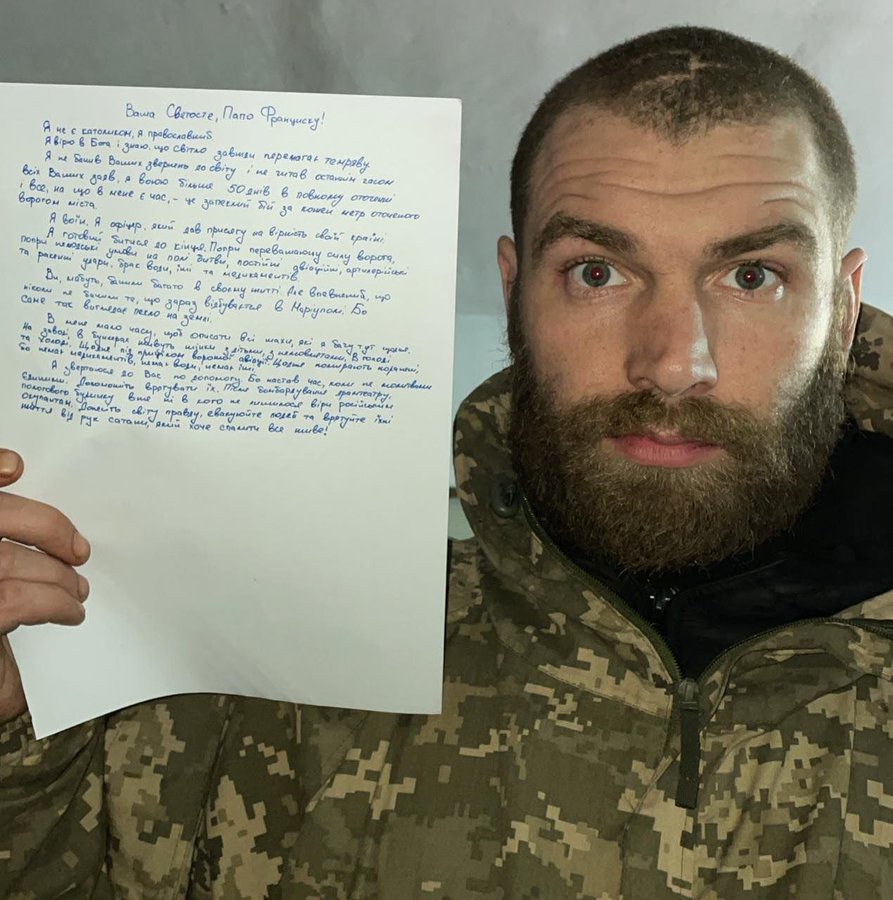 Ваша Светосте, Папо Франциску!
Я не є католиком, я православний.
Я вірю в Бога і знаю, що світло завжди перемагає темряву.
Я не бачив Ваших звернень до світу і не читав останнім часом
всіх Ваших заяв, я воюю більше 50 днів в повному оточенні
і все, на що в мене є час, - це запеклий бій за кожен метр оточеного
ворогом міста.
Я воїн. Я офіцер, який дав присягу на вірність своїй країні.
Я готовий битися до кінця. Попри переважаючу силу ворога,
попри нелюдські умови на полі битви, постійні авіаційні, артилерійські
та ракетні удари, брак води, їжі та медикаментів.
Ви, мабуть, бачили багато в своєму житті. Але впевнений, що
ніколи не бачили те, що зараз відбувається в Маріуполі. Бо
саме так виглядає пекло на землі.
В мене мало часу, щоб описати всі жахи, які я бачу тут щодня.
На заводі в бункерах живуть жінки з дітьми, з немовлятами. В голоді
та холоді. Щодня під прицілом ворожої авіації. Щодня помирають поранені,
бо немає медикаментів, немає води, немає їжі.
Я звертаюся до Вас по допомогу. Бо настав час, коли не молитвами
єдиними. Допоможіть врятувати їх. Після бомбардування драмтеатру,
пологового будинку вже ні в кого не лишилося віри російським
окупантам. Донесіть світу правду, евакуюйте людей та врятуйте їхні
життя від рук сатани, який хоче спалити все живе!